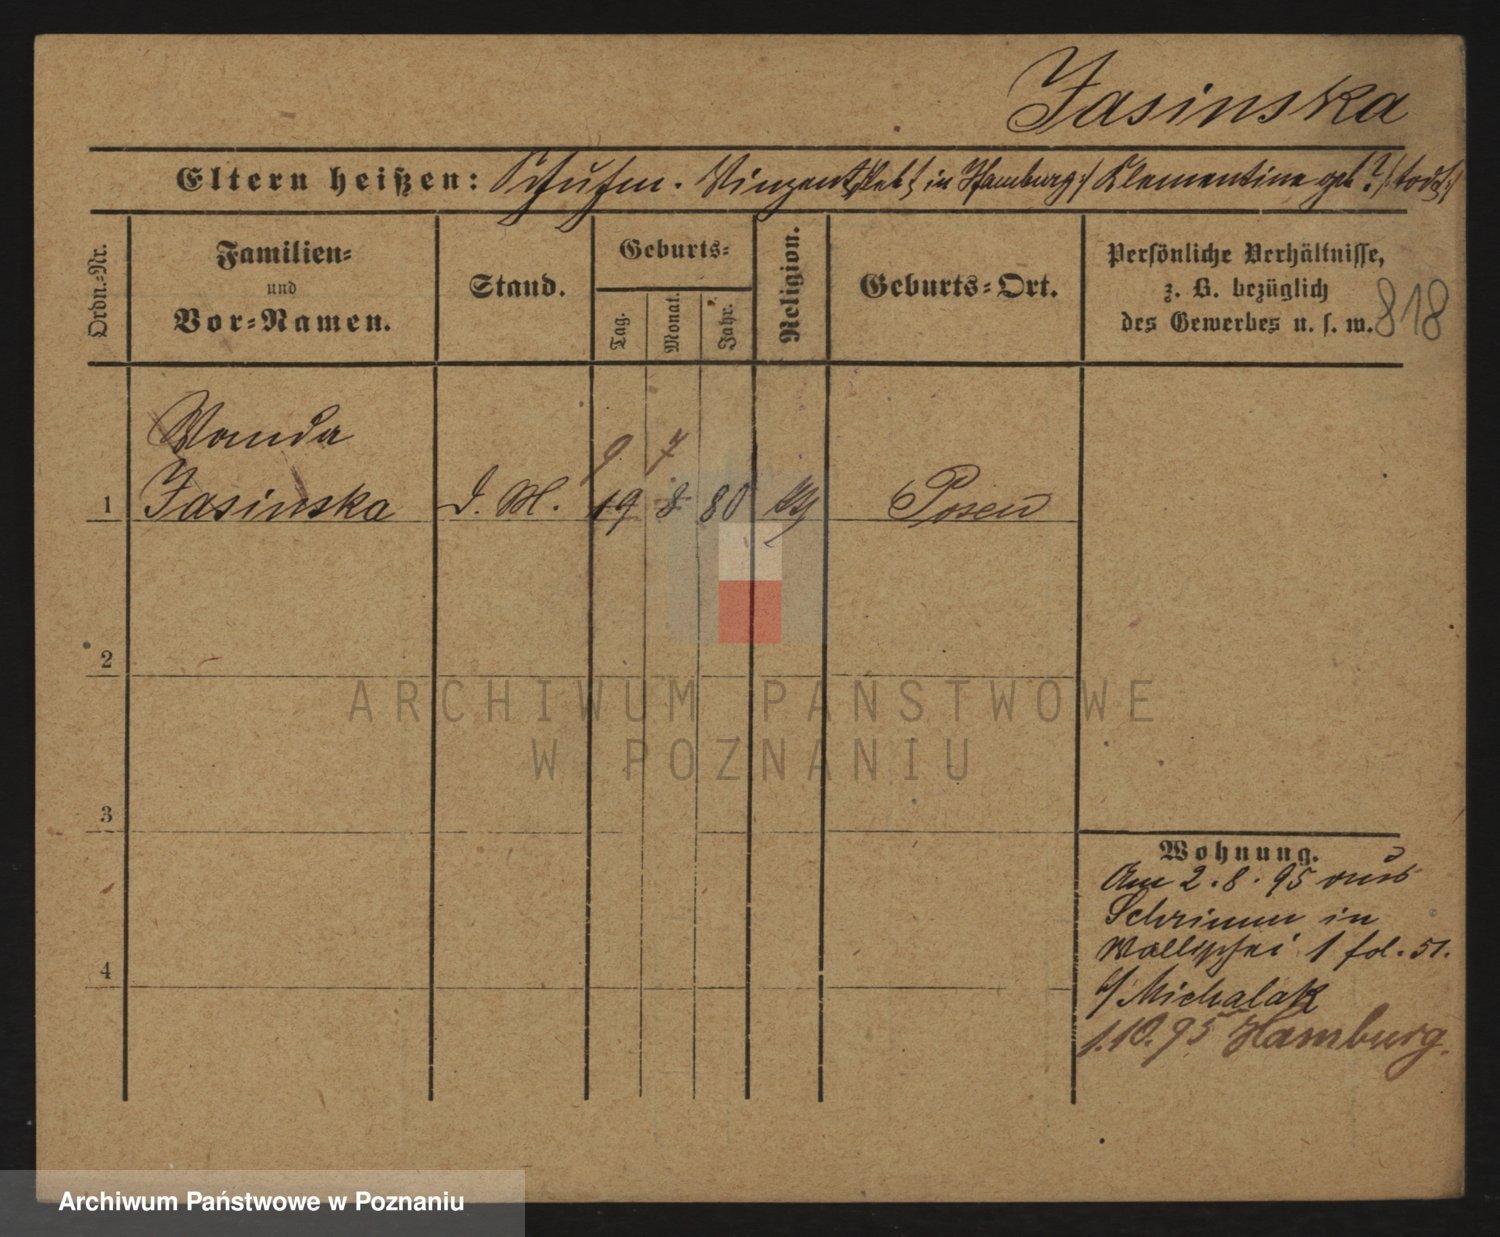 Jasinska
Eltern heißen: Schuhm. Vinzent /:lebt in Hamburg:/ Klementine geb ? /:todt:/
Ordn.-Nr.
Familien-
und
Vor-Namen.
Stand.
Geburts-
Tag.
Monat.
Jahr.
Religion.
Geburts-Ort.
Persönliche Verhältnisse,
z. B. bezüglich
des Gewerbes u. s. w.
818
Wanda
9 7
1 Jasinska d. M. 19 8 80 Posen
2
ARCHIWUM PAŃSTWOWE
W POZNANIU
3
Wohnung.
Am 2.8.95 aus
Schrimm in
Wallischei 1 fol. 51.
b/ Michalak
1.10.95 Hamburg.
4
Archiwum Państwowe w Poznaniu